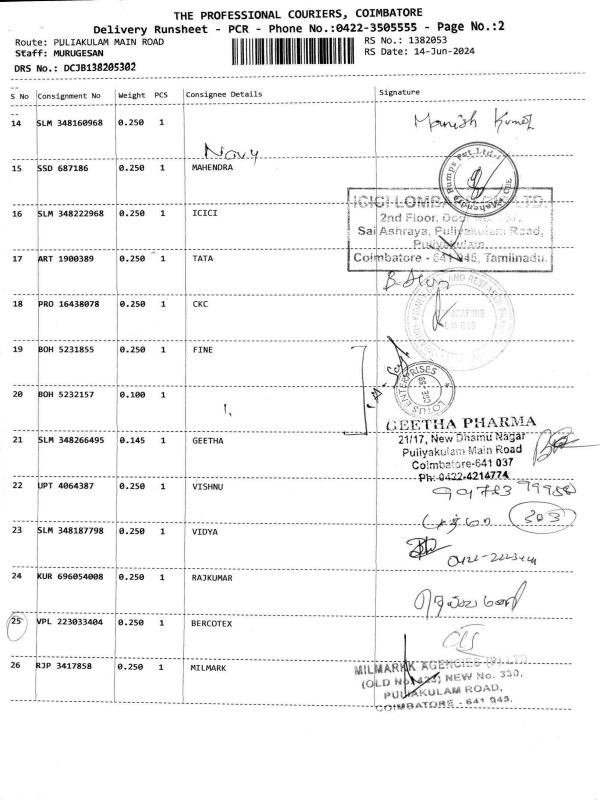 THE PROFESSIONAL COURIERS, COIMBATORE
Delivery Runsheet - PCR - Phone No.:0422-3505555 - Page No.:2
Route: PULIAKULAM MAIN ROAD
RS No.: 1382053
Staff: MURUGESAN
RS Date: 14-Jun-2024
DRS No.: DCJB138205302
S No Consignment No Weight PCS Consignee Details Signature
14 SLM 348160968 0.250 1
Manish Kumar
Navy
15 SSD 687186 0.250 1 MAHENDRA
Pumps Pvt.Ltd.
CBE
16 SLM 348222968 0.250 1 ICICI
ICICI LOMBARD LTD.
2nd Floor, Door No.
Sai Ashraya, Puliyakulam Road,
Puliyakulam,
Coimbatore - 641 045, Tamilnadu.
17 ART 1900389 0.250 1 TATA
18 PRO 16438078 0.250 1 CKC
19 BOH 5231855 0.250 1 FINE
LOTUS ENTERPRISES
20 BOH 5232157 0.100 1
GEETHA PHARMA
21/17, New Dhamu Nagar
Puliyakulam Main Road
Coimbatore-641 037
Ph: 0422-4214774
21 SLM 348266495 0.145 1 GEETHA
22 UPT 4064387 0.250 1 VISHNU
303
23 SLM 348187798 0.250 1 VIDYA
24 KUR 696054008 0.250 1 RAJKUMAR
25 VPL 223033404 0.250 1 BERCOTEX
26 RJP 3417858 0.250 1 MILMARK
MILMARKK AGENCIES (P) LTD
(OLD No. 423) NEW No. 330,
PULIAKULAM ROAD,
COIMBATORE - 641 045.